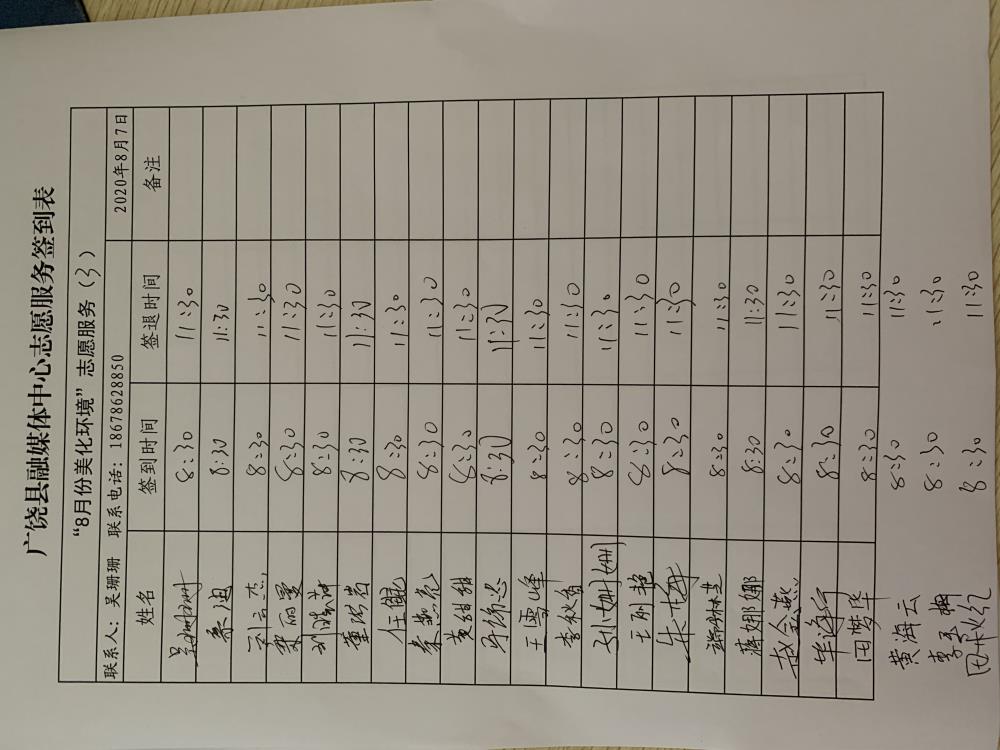 广饶县融媒体中心志愿服务签到表
“8月份美化环境”志愿服务（3）
联系人：吴珊珊 联系电话：18678628850 2020年8月7日
姓名 签到时间 签退时间 备注
吴珊珊 8:30 11:30
8:30 11:30
8:30 11:30
8:30 11:30
8:30 11:30
8:30 11:30
任健 8:30 11:30
秦燕亮 8:30 11:30
黄甜甜 8:30 11:30
8:30 11:30
王雪峰 8:30 11:30
李秋香 8:30 11:30
孙姗姗 8:30 11:30
王丽艳 8:30 11:30
朱梅 8:30 11:30
8:30 11:30
蒋娜娜 8:30 11:30
赵会燕 8:30 11:30
8:30 11:30
田梦华 8:30 11:30
黄海云 8:30 11:30
8:30 11:30
田秋红 8:30 11:30